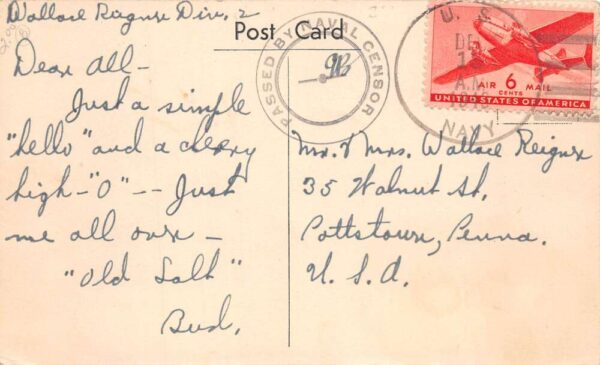 Wallace Reigner Div. 2
Post Card
Dear All-
Just a simple
"hello" and a cheery
high-"O" -- Just
me all over -
"Old Salt"
Bud.
PASSED BY NAVAL CENSOR
U. S.
DE
A.M
NAVY
AIR 6 MAIL
CENTS
UNITED STATES OF AMERICA
Mr. & Mrs. Wallace Reigner
35 Walnut St.
Pottstown, Penna.
U. S. A.